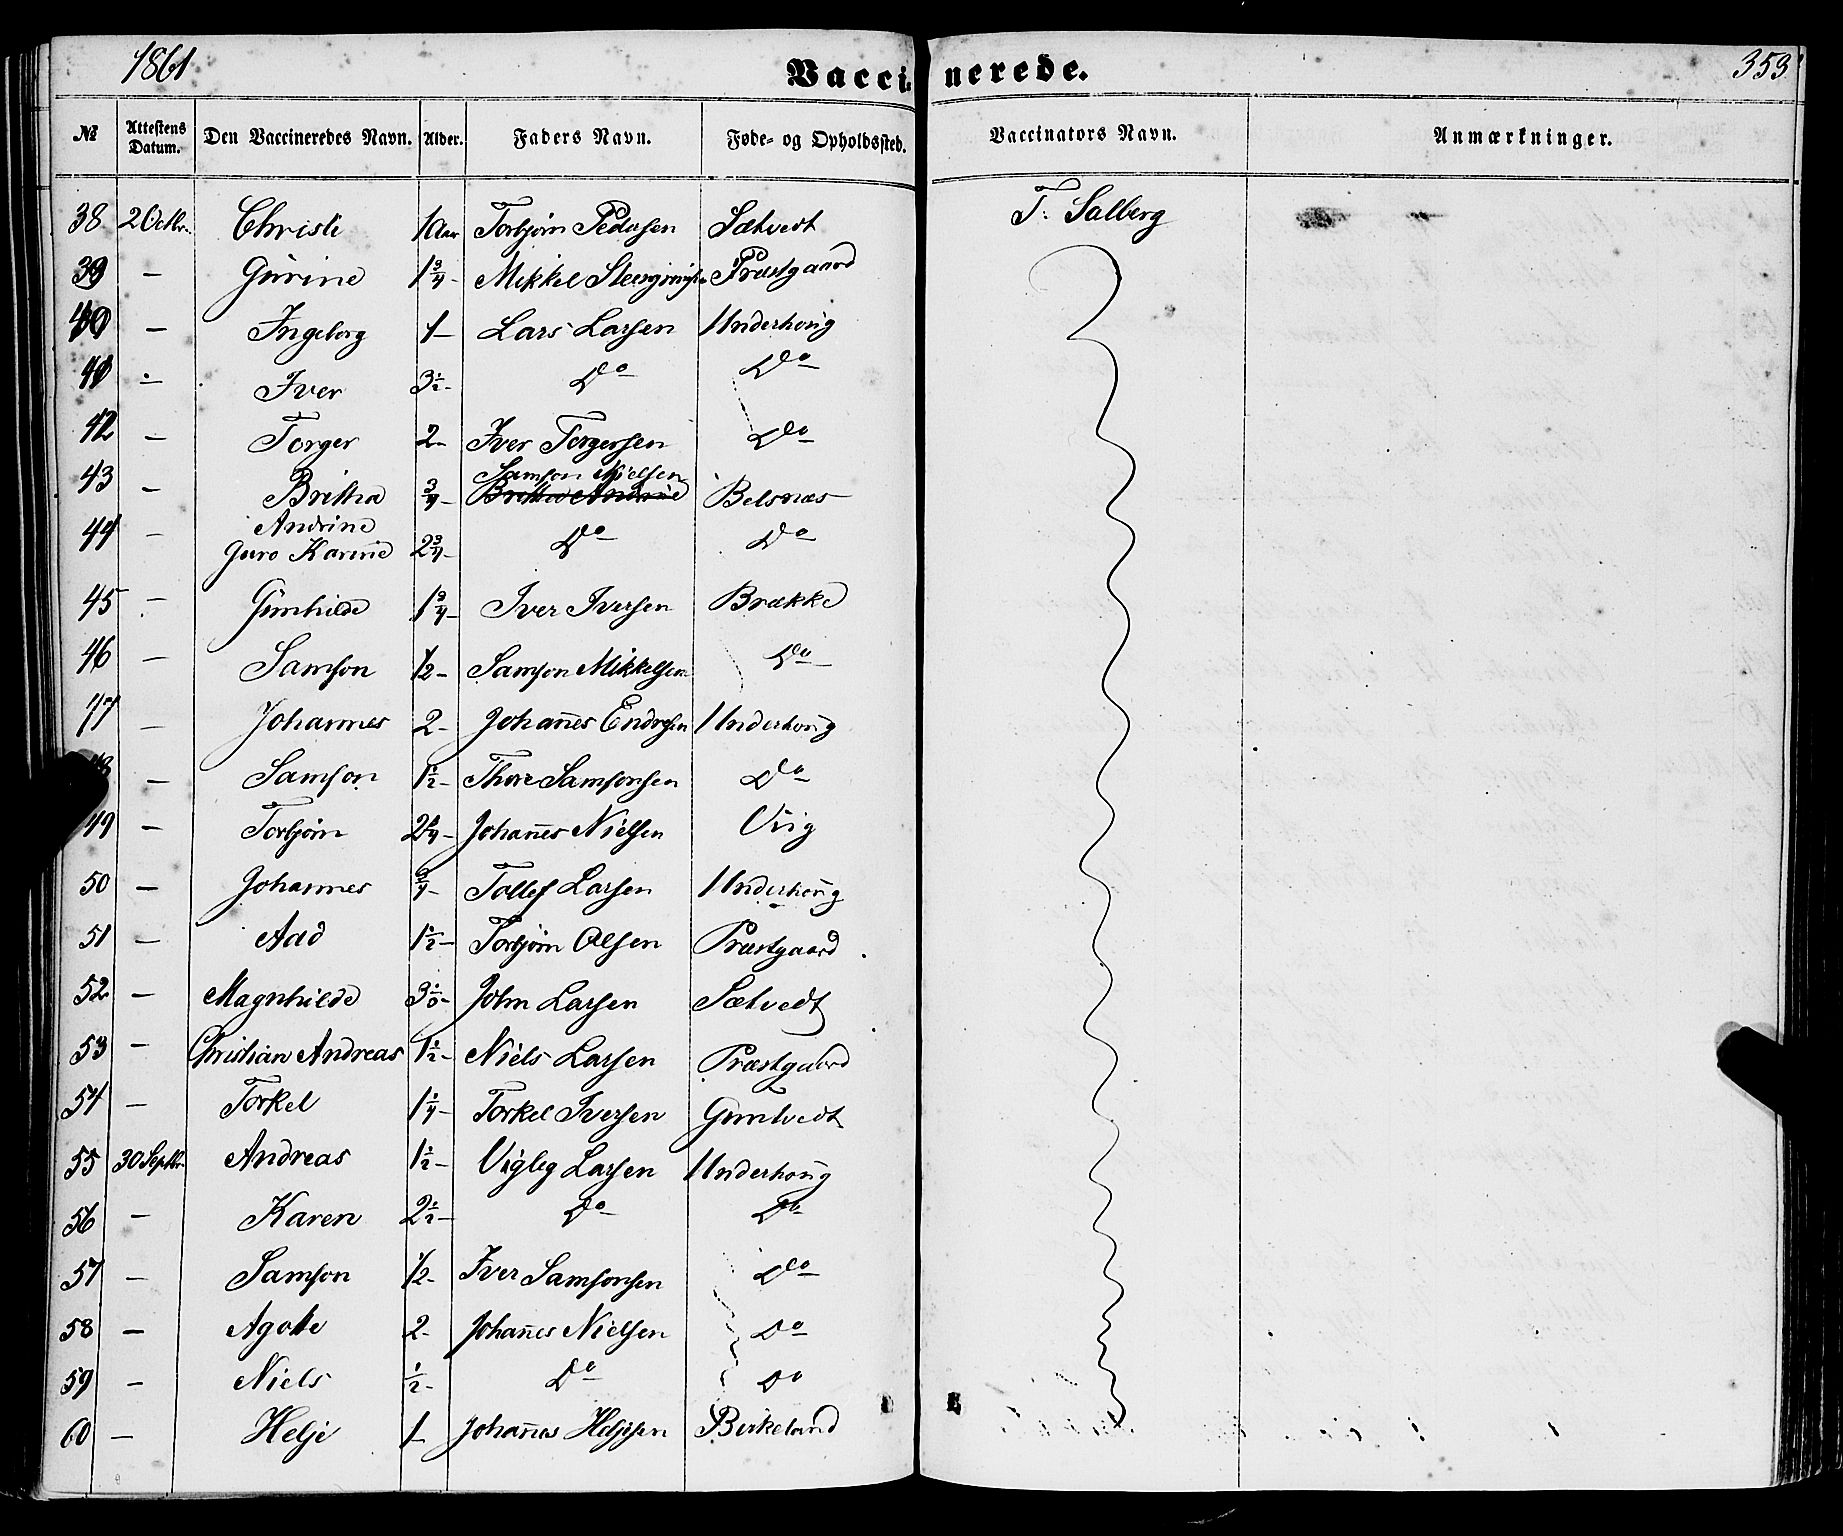 1861 Vaccinerede. 353
№ Attestens Datum. Den Vaccineredes Navn. Alder. Faders Navn. Føde- og Opholdssted. Vaccinators Navn. Anmærkninger.
38 2 Octbr. Christi 1 Aar Torbjörn Pedersen Sætvedt T. Salberg
39 — Gurine 1 3/4 - Mikkel Præstgaard
40 — Ingeborg 1 - Lars Larsen Underhoug
41 - Iver 3 1/2 - Do Do
42 — Torger 2 - Iver Torgersen Do
43 — Britha Andrine 3/4 - Samson Nielsen Belsnæs
44 — Guro Karine 2 3/4 - Do Do
45 — Gunhilde 1 3/4 - Iver Iversen Brække
46 — Samson 1/2 - Samson Mikkelsen Do
47 — Johannes 2 - Johañes Endresen Underhoug
48 — Samson 1 1/2 - Thore Samsonsen Do
49 — Torbjörn 2 1/4 - Johañes Nielsen Viig
50 — Johannes 3/4 - Tollef Larsen Underhoug
51 — Aad 1 1/2 - Torbjörn Olsen Præstgaard
52 — Magnhilde John Larsen Sætvedt
53 — Christian Andreas 1 1/2 - Niels Larsen Præstgaard
54 — Torkel 1 1/4 - Torkel Iversen Gimtvedt
55 30 Septbr. Andreas 1 1/2 - Vigleg Larsen Underhoug
56 — Karen 2 1/2 - Do Do
57 — Samson 1/2 - Iver Samsonsen Do
58 — Agate 2 - Johañes Nielsen Do
59 — Niels 1/2 - Do Do
60 — Helje 1 - Johañes Heljesen Birkeland